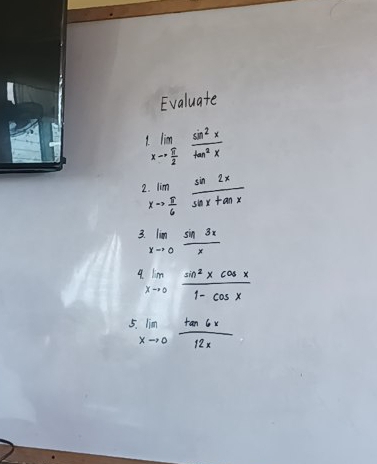 Evaluate
1. lim x→π/2 sin² x / tan² x
2. lim x→π/6 sin 2x / sin x tan x
3. lim x→0 sin 3x / x
4. lim x→0 sin² x cos x / 1- cos x
5. lim x→0 tan 6x / 12x